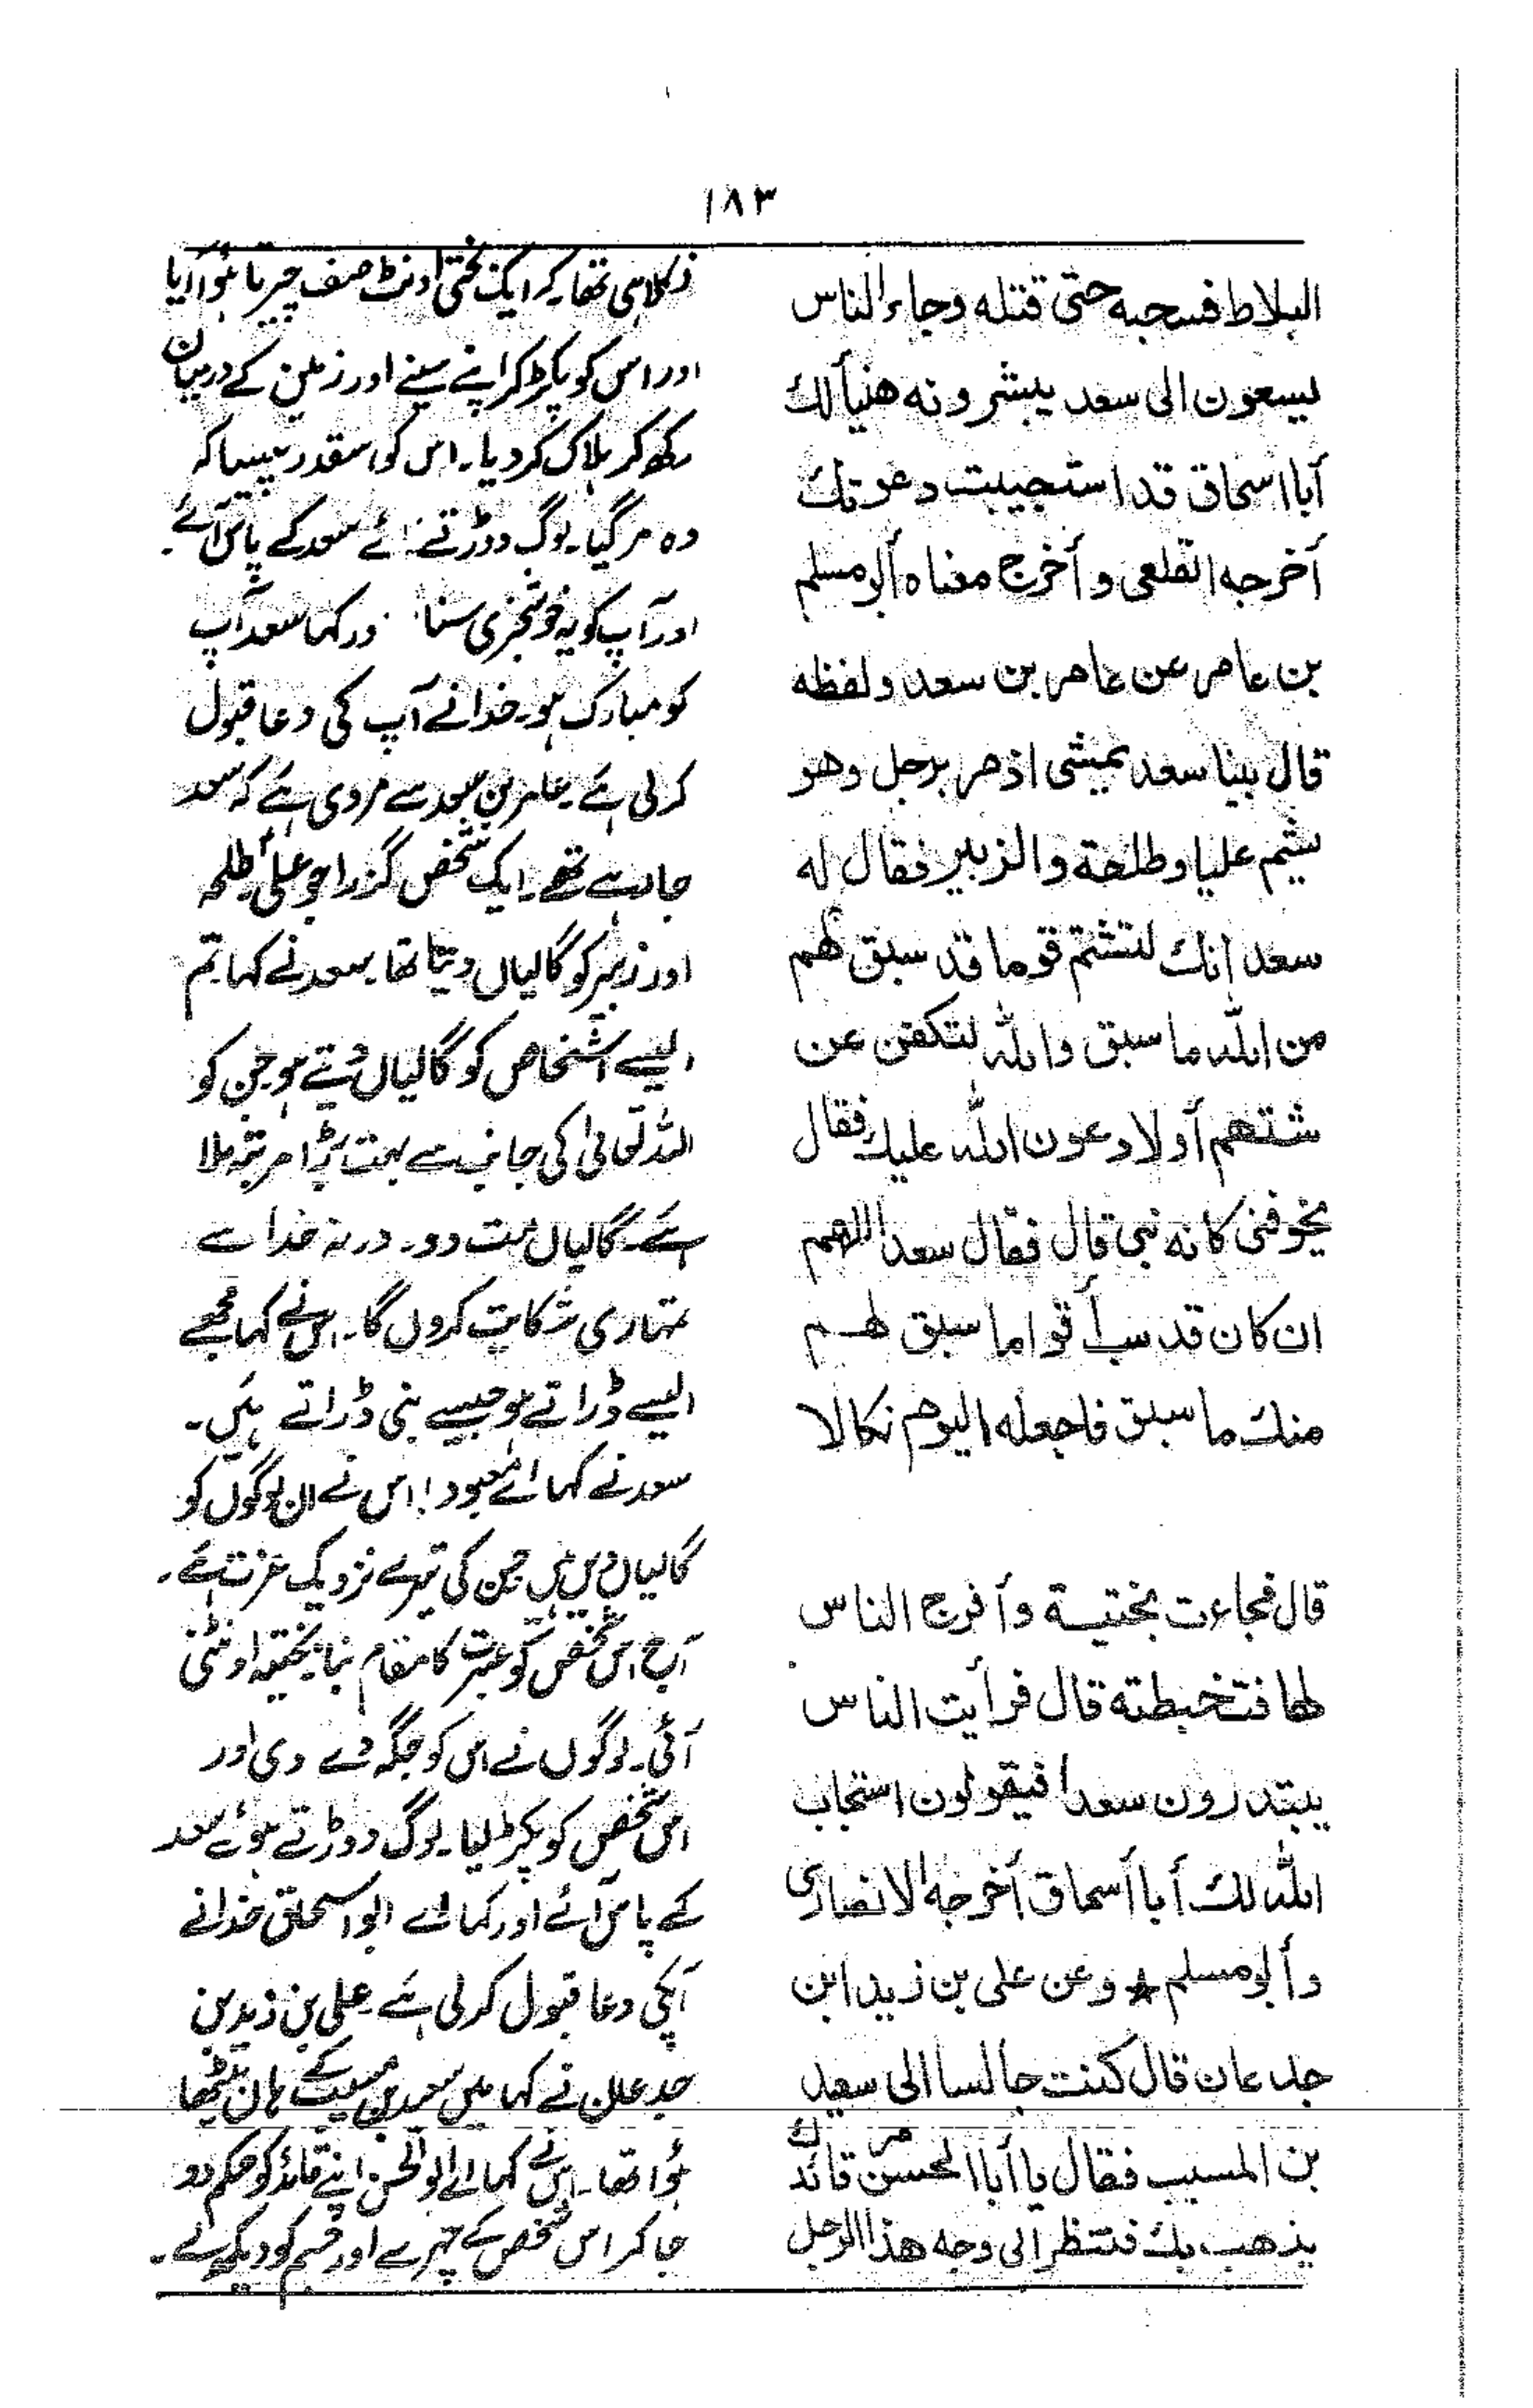 ١٨٣
البلاط فسحبه حتى قتله وجاء الناس
يسعون الى سعد يبشرونه هنيأ لك
أبا اسحاق قد استجيبت دعوتك
أخرجه القلعى و أخرج معناه أبو مسلم
بن عامر عن عامر بن سعد ولفظه
قال بينا سعد يمشى اذ مر برجل وهو
يشتم عليا وطلحة والزبير فقال له
سعد انك لتشتم قوما قد سبق لهم
من الله ما سبق والله لتكفن عن
شتمهم أو لادعون الله عليك فقال
يخوفنى كانه نبى قال فقال سعد اللهم
ان كان قد سبأ قواما سبق لهم
منك ما سبق فاجعله اليوم نكالا
قال فجاءت بختية وأفرج الناس
لها فتخبطته قال فرأيت الناس
يبتدرون سعدا فيقولون استجاب
الله لك أبا أسحاق أخرجه الانصارى
وأبو مسلم ★ وعن على بن زيد ابن
جدعان قال كنت جالسا الى سعيد
بن المسيب فقال يا أبا الحسن مر قائدك
يذهب بك فتنظر الى وجه هذا الرجل
نکلا ہی تھا۔ کہ ایک بختی اونٹ صف چیرتا ہؤا آیا
اور اس کو پکڑ کر اپنے سینے اور زمین کے درمیان
رکھ کر ہلاک کر دیا۔ اس کو اسقدر پیسا کہ
وہ مر گیا۔ لوگ دوڑتے سعد کے پاس آئے۔
اور آپ کو یہ خوشخبری سنا اور کہا سعد آپ
کو مبارک ہو۔ خدا نے آپ کی دعا قبول
کر لی ہے۔ عامر بن سعد سے مروی ہے کہ سعد
جا رہے تھے۔ ایک شخص گزرا جو علی، طلحہ
اور زبیر کو گالیاں دیتا تھا۔ سعد نے کہا۔ تم
ایسے اشخاص کو گالیاں دیتے ہو جن کو
اللہ تعالیٰ کی جانب سے بہت بڑا مرتبہ ملا
ہے۔ گالیاں مت دو۔ ورنہ خدا سے
تمہاری شکایت کروں گا۔ اس نے کہا مجھے
ایسے ڈراتے ہو جیسے نبی ڈراتے ہیں۔
سعد نے کہا اے معبود! اس نے ان لوگوں کو
گالیاں دیں ہیں جن کی تیرے نزدیک عزت ہے۔
آج اس شخص کو عبرت کا مقام بنا۔ بختیہ اونٹنی
آئی۔ لوگوں نے اس کو جگہ دے دی اور
اس شخص کو پکڑ لیا۔ لوگ دوڑتے ہوئے سعد
کے پاس آئے اور کہا اے ابو اسحٰق خدا نے
آپکی دعا قبول کر لی ہے۔ علی بن زید بن
جدعان نے کہا میں سعید بن مسیب کے ہاں بیٹھا
ہؤا تھا۔ اس نے کہا اے ابو الحسن اپنے قائد کو حکم دو
جا کر اس شخص کے چہرے اور جسم کو دیکھ لے۔